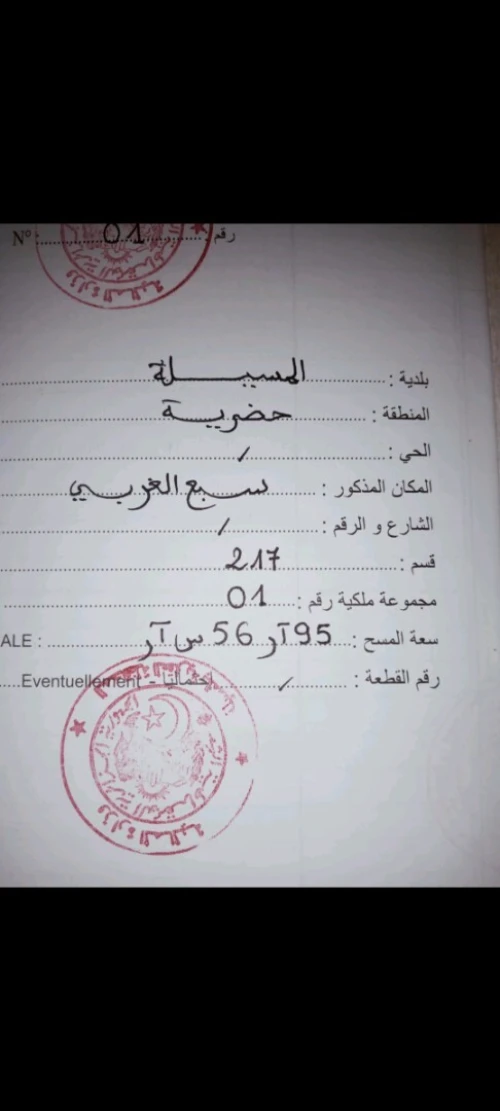 رقم : 01 : N°
بلدية : المسيلة
المنطقة : حضرية
الحي : /
المكان المذكور : سبع الغربي
الشارع و الرقم : /
قسم : 217
مجموعة ملكية رقم : 01
سعة المسح : 95 آر 56 س آر : ALE
رقم القطعة : / إحتماليا - Eventuellement
وزارة المالية